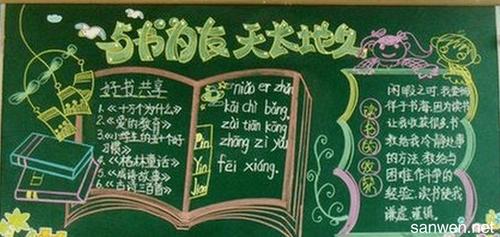 与书为友 天长地久
好书共享
1.《十万个为什么》
2.《爱的教育》
3.《小学生的五十个好
习惯》
4.《格林童话》
5.《成语故事》
6.《古诗三百首》
Pin
Yin
niǎo er zhǎn
kāi chì bǎng,
zài tiān kōng
zhōng zì yóu
fēi xiáng.
读书的
闲暇之时,我坐
伴于书海,因为读书
让我收获很多。书
教给我冷静处事
的方法,教给与
困难作斗争的
经验,读书使我
谦虚、谨慎。
sanwen.net